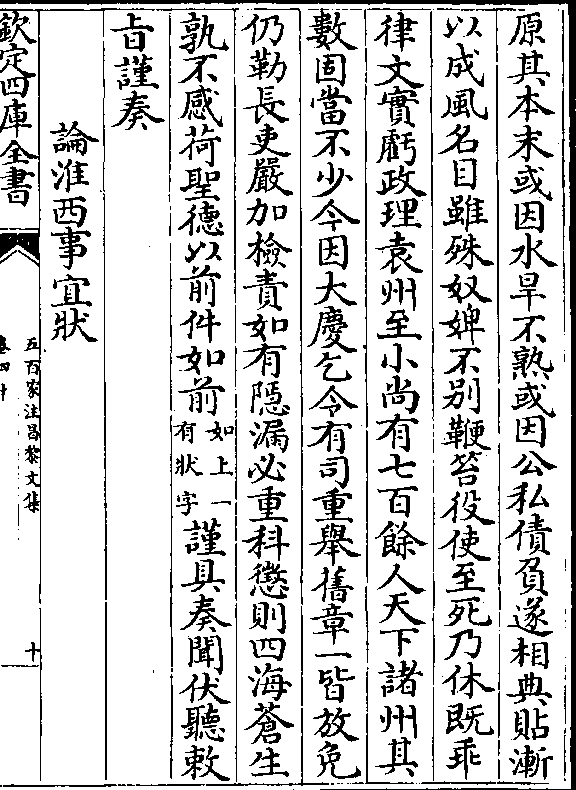 原其本末或因水旱不熟或因公私債負遂相典貼漸
以成風名目雖殊奴婢不别鞭笞役使至死乃休既乖
律文實虧政理袁州至小尚有七百餘人天下諸州其
數固當不少今因大慶乞令有司重舉舊章一皆放免
仍勒長吏嚴加檢責如有隱漏必重科懲則四海蒼生
孰不感荷聖德以前件如前如上一有狀字謹具奏聞伏聽敕
㫖謹奏
論淮西事宜狀
欽定四庫全書
五百家注昌黎文集
十